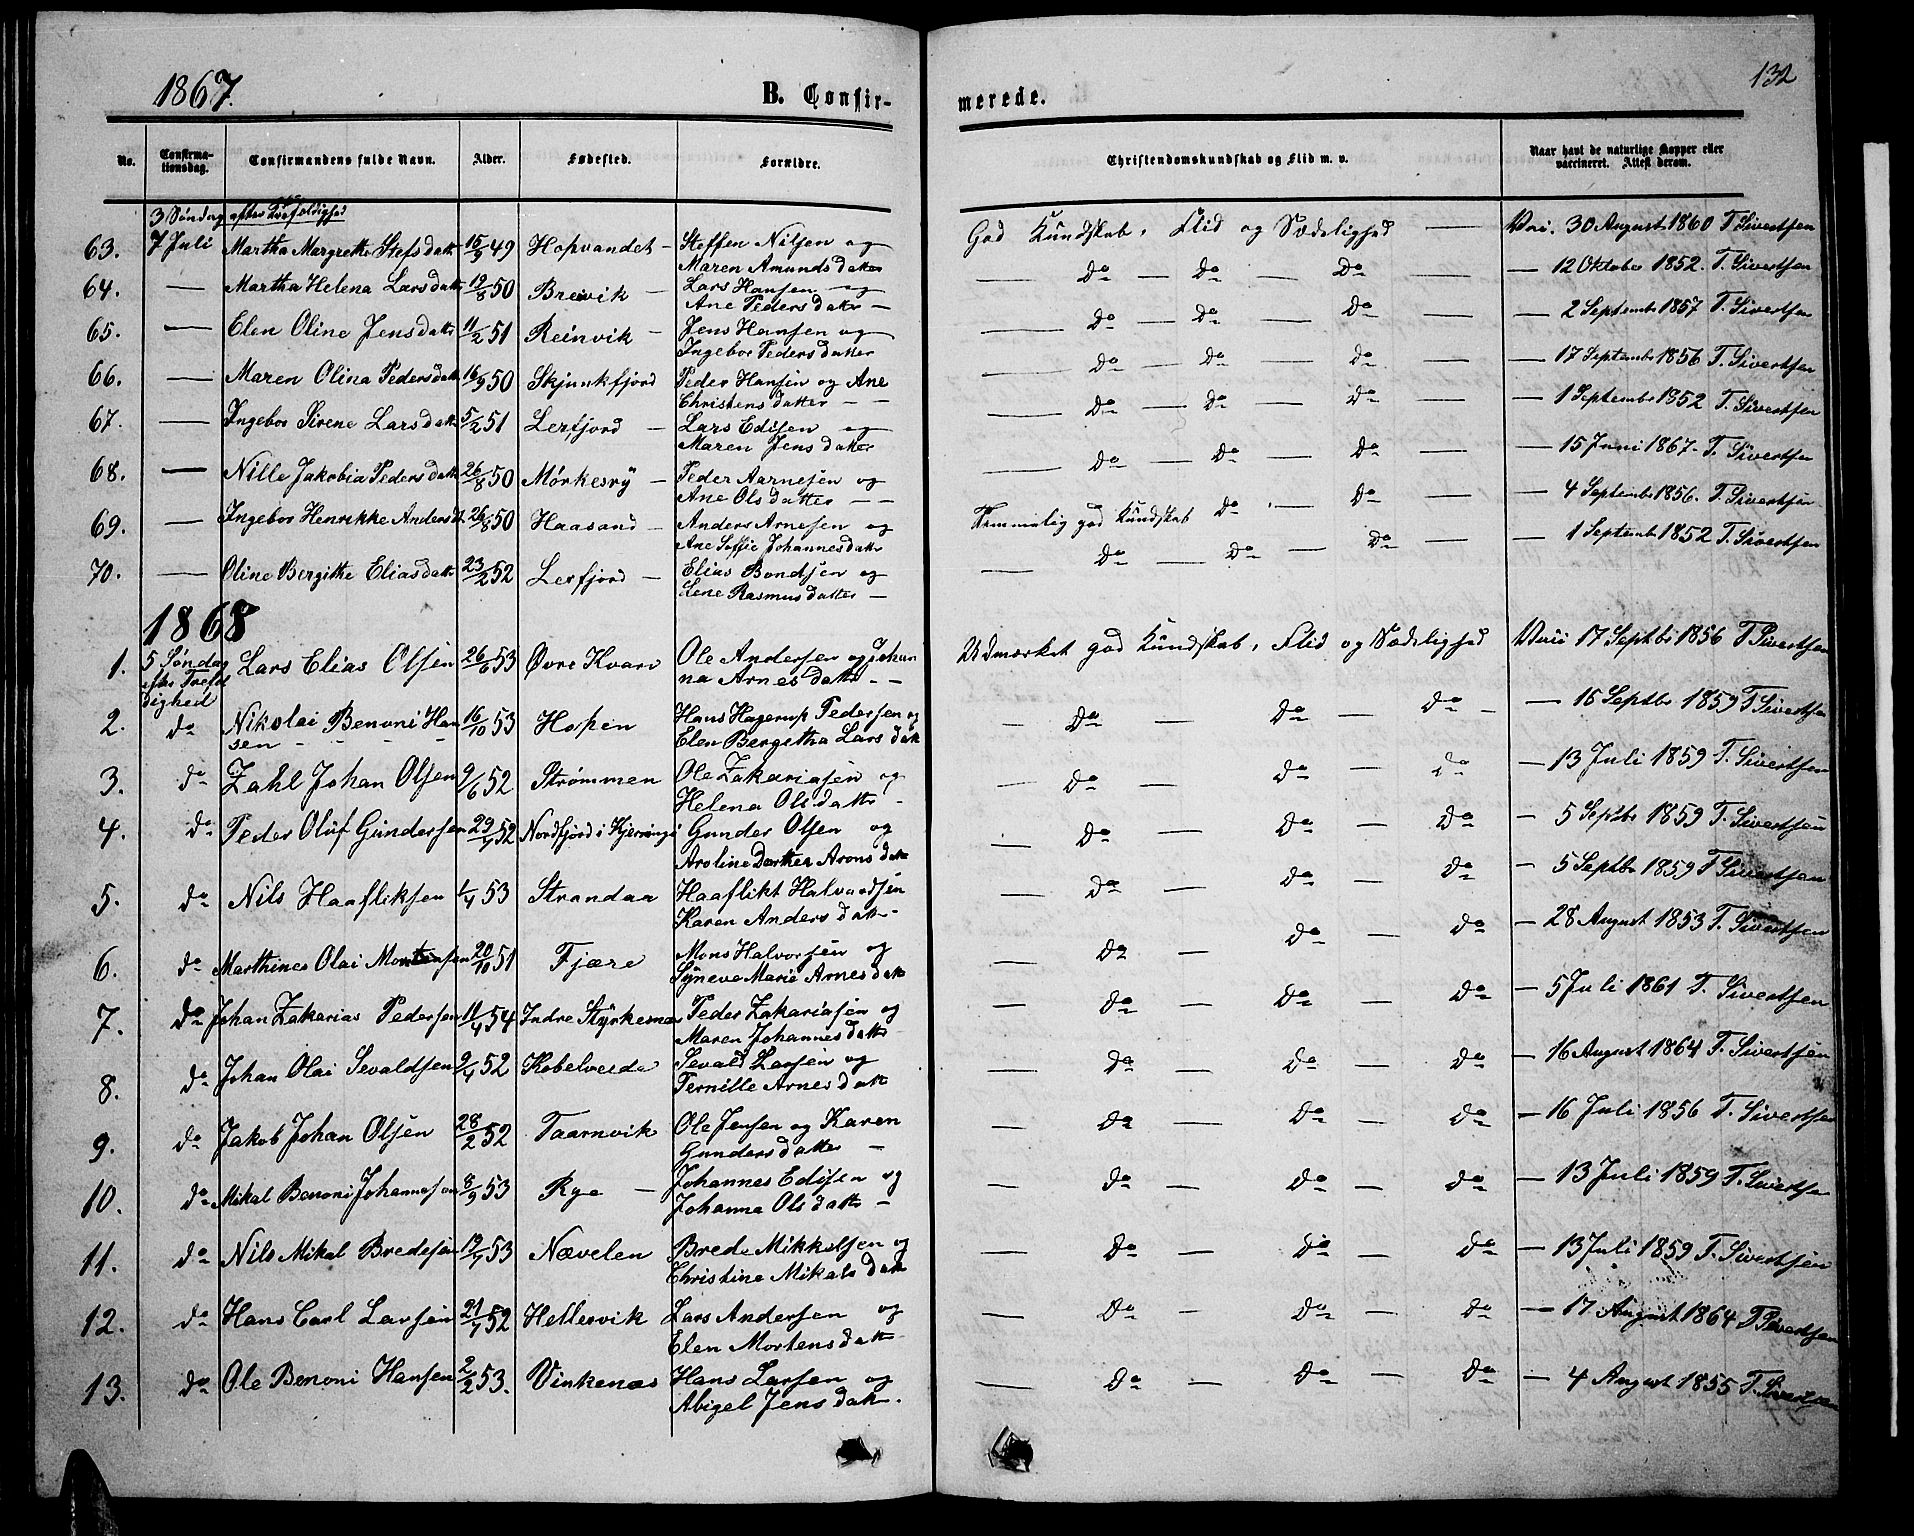 1867. B. Confir- merede. 132
No. Confirma-tionsdag. Confirmandens fulde Navn. Alder. Fødested. Forældre. Christendomskundskab og Flid m. v. Naar havt de naturlige Kopper eller vaccineret. Attest derom.
3 Søndag efter Trefoldighed
63. 7 Juli Martha Margrethe Stefsdatt 15/9 49 Hopvandet - Steffen Nilsen og God Kundskab, Flid og Sædelighed — Vaci. 30 August 1860 T. Sivertsen
Maren Amundsdatter
64. — Martha Helena Larsdatt 19/8 50 Breivik - Lars Hansen og Do — Do — Do — 12 Oktober 1852. T. Sivertsen
Ane Pedersdatter —
65. — Elen Oline Jensdatter 11/2 51 Reinvik - Jens Hansen og — Do — Do — Do — 2 September 1857 T. Sivertsen
Ingebor Pedersdatter
66. — Maren Olina Pedersdatt 16/9 50 Skjunkfjord Peder Hansen og Ane — Do — Do — Do — 17 September 1856 T. Sivertsen
Christensdatter — —
67. — Ingebor Sirene Larsdatt 5/2 51 Lerfjord - Lars Edisen og — Do — Do — Do — 1 September 1852 T. Sivertsen
Maren Jensdatter
68. — Nille Jakobia Pedersdatt 26/8 50 Mørkesvy - Peder Aarnesen og — Do — Do — Do — 15 Juni 1867. T. Sivertsen
Ane Olsdatter — —
69. — Ingebor Henrikke Andersdt 26/8 50 Haasand - Anders Arnesen og Temmelig god Kundskab Do — Do — 4 September 1856. T. Sivertsen
Ane Soffie Johannesdatter
70. — Oline Bergitthe Eliasdatt 23/2 52 Lerfjord - Elias Bondsen og — Do — Do — Do — 1 September 1852 T. Sivertsen
Lene Rasmusdatter —
1868
1. 5 Søndag Lars Elias Olsen 26/6 53 Øvre Kvarv Ole Andersen og Johan Udmærket god Kundskab, Flid og Sædelighed Vacii 17 Septbr 1856 T. Sivertsen
efter Trefol na Arnesdatter — —
dighed
2. do Nikolai Benoni Han 16/10 53 Hopen Hans Hagerup Pedersen og — Do — Do — Do — 16 Septbr 1859 T. Sivertsen
sen - - - - Elen Bergetha Larsdatt
3. do Zahl Johan Olsen 9/6 52 Strømmen Ole Zakariasen og — Do — Do — Do — 13 Juli 1859 T. Sivertsen
Helena Olsdatter -
4. do Peder Oluf Gundersen 29/7 52 Nordfjord i Kjerringø Gunder Olsen og — Do — Do — Do — 5 Septbr 1859 T. Sivertsen
Aroline Dorthea Aronsdatt
5. do Nils Haafliksen 1/4 53 Strandaa Haaflikt Halvardsen — Do — Do — Do — 5 Septbr 1859 T. Sivertsen
Karen Andersdatt -
6. do Marthines Olai Montensen 20/10 51 Fjære Mons Halvorsen og — Do — Do — Do — 28 August 1853 T. Sivertsen
Syneva Marie Arnesdatt
7. Do Johan Zakarias Pedersen 11/4 54 Indre Styrkesnæs Peder Zakariasen og — Do — Do — Do — 5 Juli 1861 T. Sivertsen
Maren Johannesdatt
8. do Johan Olai Sevaldsen 9/4 52 Kobelveide Sevald Larsen og — Do — Do — Do — 16 August 1864 T. Sivertsen
Pernille Arnesdatt
9. do Jakob Johan Olsen 28/2 52 Taarnvik Ole Jensen og Karen — Do — Do — Do — 16 Juli 1856 T. Sivertsen
Gundersdatter —
10. do Mikal Benoni Johannesen 8/9 53 Rye — Johannes Edisen og — Do — Do — Do — 13 Juli 1859 T. Sivertsen
Johanna Olsdatter —
11. do Nils Mikal Bredesen 19/7 53 Nævelen Brede Mikkelsen og — Do — Do — Do — 13 Juli 1859 T. Sivertsen
Christine Mikalsdatt
12. do Hans Carl Larsen 21/7 52 Hellervik Lars Andersen og — Do — Do — Do — 17 August 1864 T. Sivertsen
Elen Mortensdatt -
13. do Ole Benoni Hansen 2/2 53. Vinkenæs Hans Larsen og — Do — Do — Do — 4 August 1855 T. Sivertsen
Abigel Jensdatt.